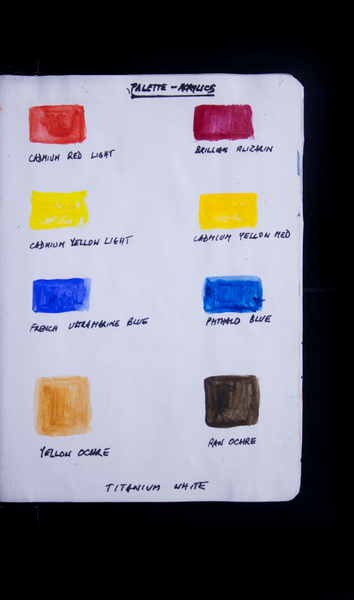 PALETTE - ACRYLICS
CADMIUM RED LIGHT
BRILLIANT ALIZARIN
CADMIUM YELLOW LIGHT
CADMIUM YELLOW MED
FRENCH ULTRAMARINE BLUE
PHTHALO BLUE
YELLOW OCHRE
RAW OCHRE
TITANIUM WHITE